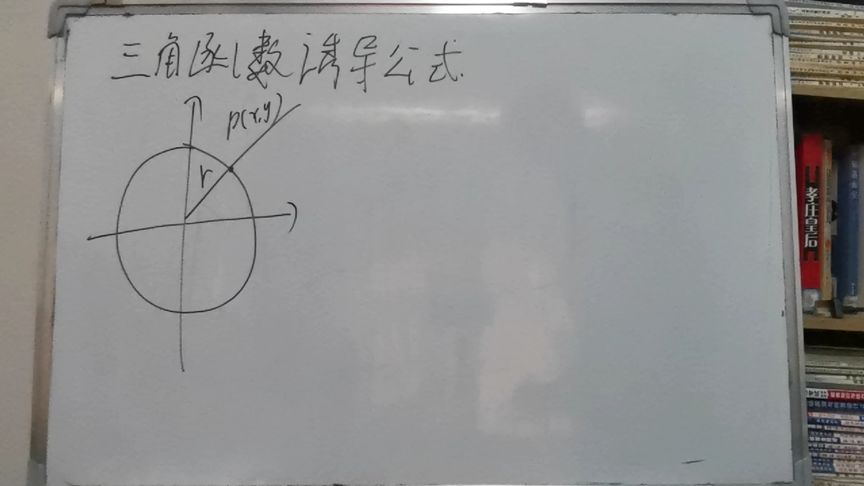 三角函数诱导公式.
P(x,y)
r
孝庄皇后